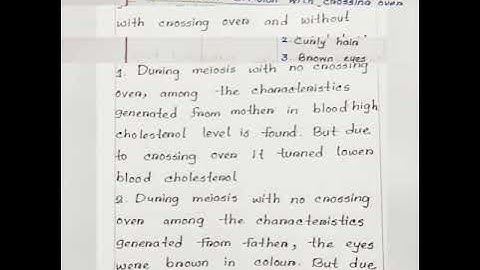 with crossing over
with crossing over and without
2. Curly hair
3. Brown eyes
1. During meiosis with no crossing
over, among the characteristics
generated from mother in blood high
cholesterol level is found. But due
to crossing over it turned lower
blood cholesterol
2. During meiosis with no crossing
over among the characteristics
generated from father, the eyes
were brown in colour. But due